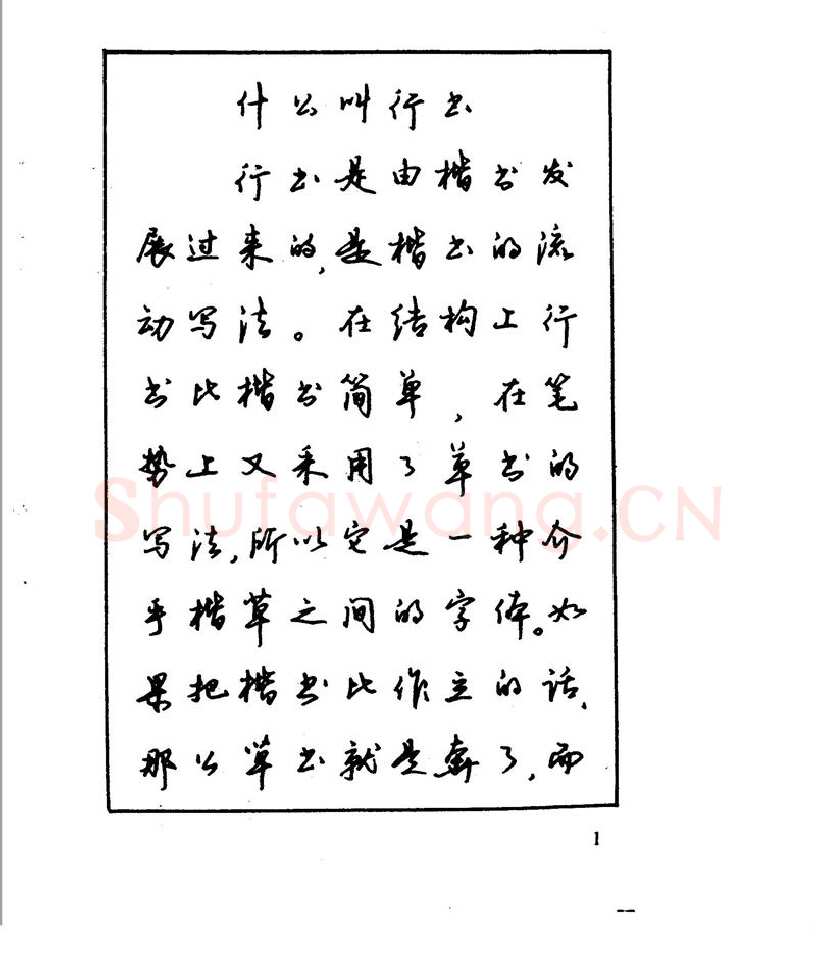 什么叫行书
行书是由楷书发
展过来的,是楷书的流
动写法。在结构上行
书比楷书简单,在笔
势上又采用了草书的
写法,所以它是一种介
乎楷草之间的字体。如
果把楷书比作立的话,
那么草书就是奔了,而
Shufawang.CN
1